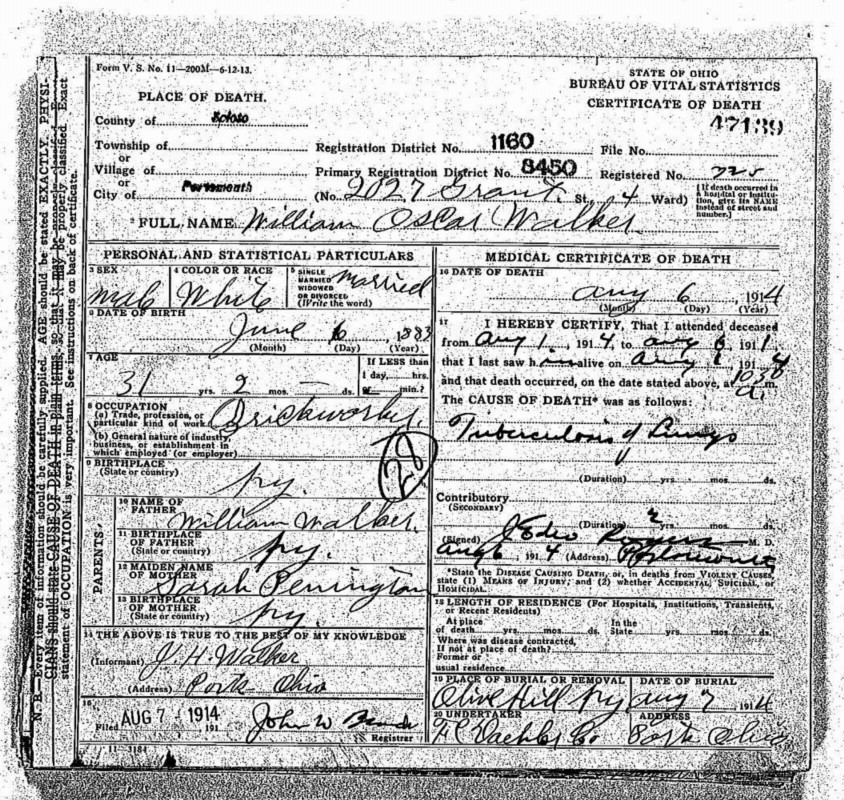 Form V. S. No. 11—200M—6-12-13.
STATE OF OHIO
BUREAU OF VITAL STATISTICS
CERTIFICATE OF DEATH
47139
PLACE OF DEATH.
County of Scioto
Township of
or
Village of
or
City of Portsmouth
Registration District No. 1160
File No.
Primary Registration District No. 8450
Registered No. 725
(No. 2027 Grant St. 4 Ward)
(If death occurred in a hospital or institution, give its NAME instead of street and number.)
2 FULL NAME William Oscar Walker
PERSONAL AND STATISTICAL PARTICULARS
3 SEX
Male
4 COLOR OR RACE
White
5 SINGLE MARRIED WIDOWED OR DIVORCED (Write the word)
Married
6 DATE OF BIRTH
June 6, 1883
(Month) (Day) (Year)
7 AGE
31 yrs. 2 mos. — ds.
If LESS than 1 day, hrs. or min.?
8 OCCUPATION
(a) Trade, profession, or particular kind of work Brickworker
(b) General nature of industry, business, or establishment in which employed (or employer)
28
9 BIRTHPLACE
(State or country)
Ky.
PARENTS
10 NAME OF FATHER
William Walker.
11 BIRTHPLACE OF FATHER
(State or country)
Ky.
12 MAIDEN NAME OF MOTHER
Sarah Penington
13 BIRTHPLACE OF MOTHER
(State or country)
Ky.
14 THE ABOVE IS TRUE TO THE BEST OF MY KNOWLEDGE
(Informant) J. H. Walker
(Address) Ports Ohio
15
Filed AUG 7 1914 191
John W.
Registrar
11-3184
MEDICAL CERTIFICATE OF DEATH
16 DATE OF DEATH
Aug 6, 1914
(Month) (Day) (Year)
17 I HEREBY CERTIFY, That I attended deceased
from Aug 1, 1914, to Aug 6, 191
that I last saw him alive on Aug 1914
and that death occurred, on the date stated above, at 10 30 a. m.
The CAUSE OF DEATH* was as follows:
Tuberculosis of Lungs
(Duration) yrs. mos. ds.
Contributory
(SECONDARY)
(Duration) yrs. mos. ds.
(Signed) M. D.
Aug 6 1914 (Address) Portsmouth
*State the DISEASE CAUSING DEATH, or, in deaths from VIOLENT CAUSES, state (1) MEANS OF INJURY; and (2) whether ACCIDENTAL, SUICIDAL, or HOMICIDAL.
18 LENGTH OF RESIDENCE (For Hospitals, Institutions, Transients, or Recent Residents)
At place of death yrs. mos. ds. In the State yrs. mos. ds.
Where was disease contracted, If not at place of death?
Former or usual residence
19 PLACE OF BURIAL OR REMOVAL
Olive Hill Ky
DATE OF BURIAL
Aug 7 1914
20 UNDERTAKER
ADDRESS
Ports Ohio
N. B.—Every item of information should be carefully supplied. AGE should be stated EXACTLY. PHYSICIANS should state CAUSE OF DEATH in plain terms, so that it may be properly classified. Exact statement of OCCUPATION is very important. See instructions on back of certificate.